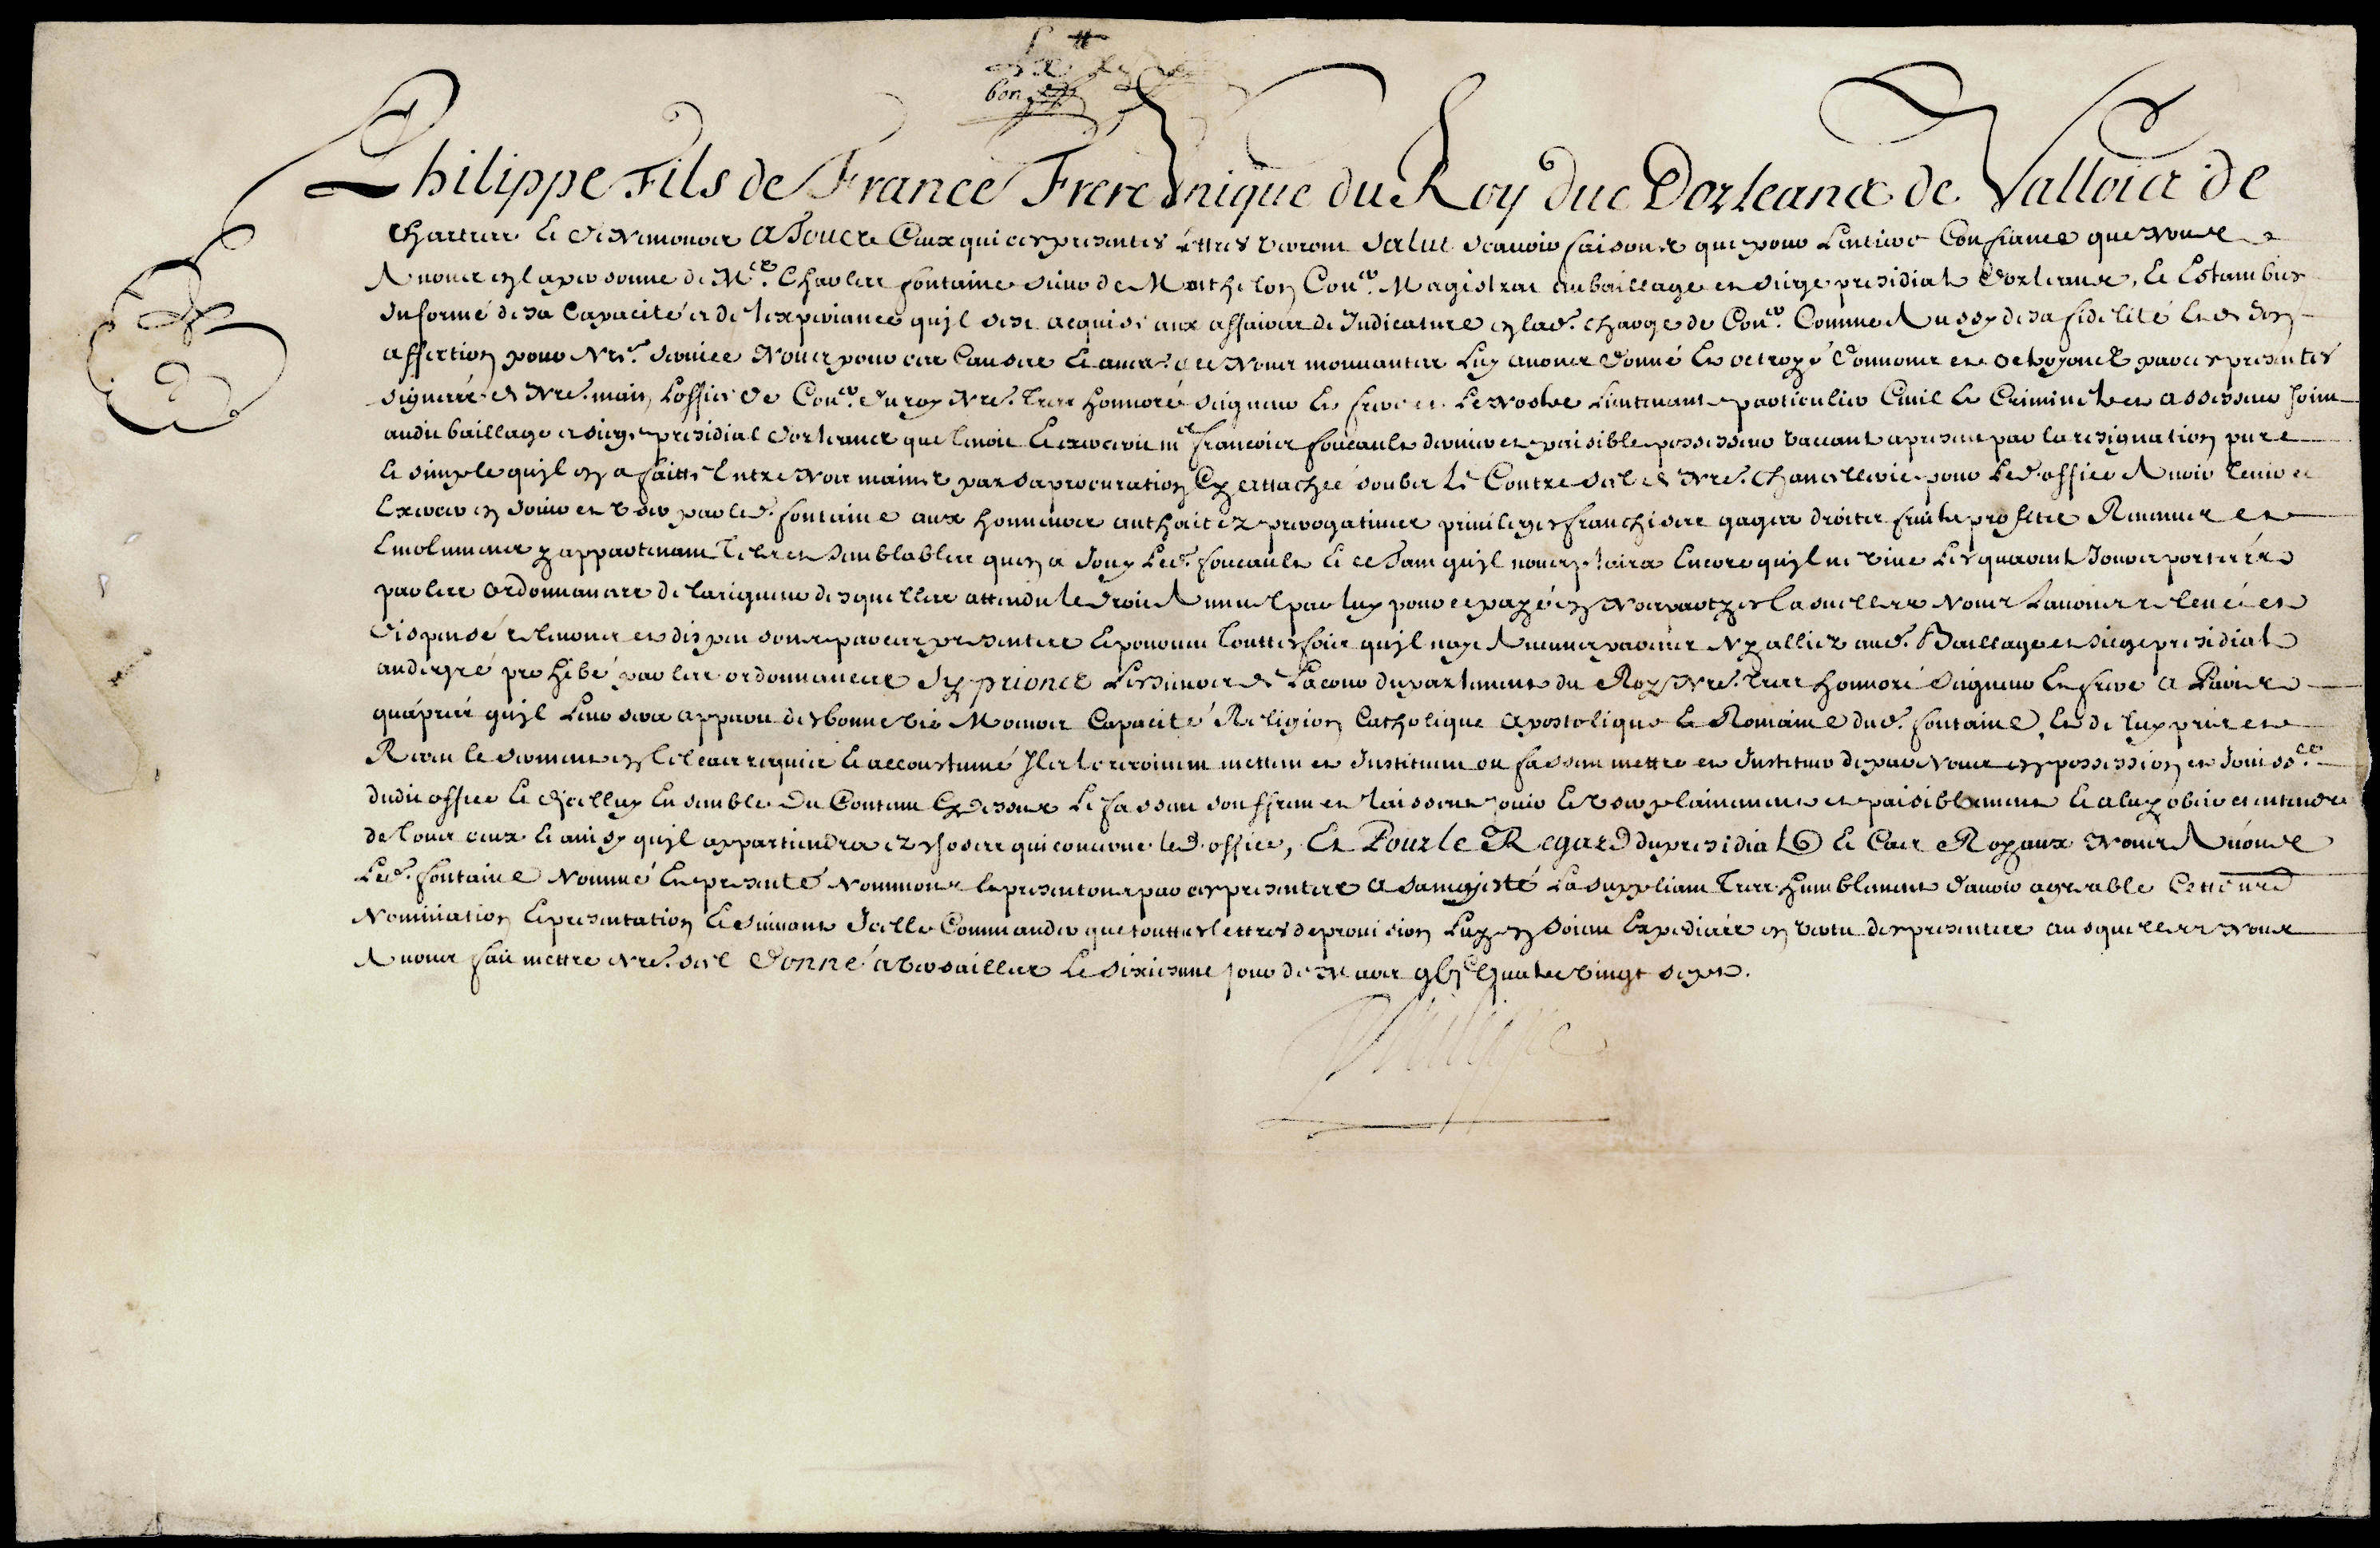 bon
Philippe Fils de France Frere Vnique du Roy duc Dorleans de Vallois de
Chartres et de Nemours A Tous Ceux qui ces presentes Lettres verront Salut Scauoir faisons que pour Lentiere Confiance que Nous
Auons en la personne de Mre. Charles fontaine sieur de Monthelon Coner. Magistrat au bailliage et siege presidial dorleans, Et Estant bien
Informé de sa Capacité et de lexperiance quil sest acquise aux affaires de Judicature en lad. charge de Coner. Comme Aussy de sa fidelité Et de son
affection pour Nre. seruice Nous pour ces Causes Et autres a ce Nous mouuantes Luy auons donné Et octroyé donnons et octroyons par ces presentes
signées de Nre. main Loffice de Coner. du roy Nre. tres honnoré seigneur Et frere et Le nostre Lieutenant particulier Ciuil Et Criminel et assesseur
audit bailliage et siege presidial dorleans que tenoit Et exercoit me francois foucault dernier et paisible possesseur vacant a present par la resignation pure
Et simple quil en a faitte Entre Nos mains par sa procuration Cy attachée soubs Le Contre seel de Nre. Chancellerie pour Led. office Auoir tenir et
Exercer en Jouir et vser par led. fontaine aux honneurs authoritez prerogatiues priuileges franchises gages droits fruits proffits Reuenus et
Emolumens y appartenans Tels et semblables quen a Jouy Led. foucault Et ce Tant quil nous plaira Encore quil ne viue Les quarante Jours portées
par les ordonnances de la rigueur desquelles attendu le droit Annuel par luy pour ce payé en Nos parties Casuelles Nous Lauons releué et
dispensé releuons et dispensons par ces presentes Et pourueu Touttesfois quil nayt Aucuns parens Ny alliez aud. Bailliage et siege presidial
au degré prohibé par les ordonnances Sy prions Les de La cour du parlement du Roy Nre. tres honnoré seigneur Et frere A Paris
quapres quil Leur sera apparu des bonne vie Moeurs Capacité Religion Catholique Apostolique Et Romaine dud. fontaine, Et de luy pris et
Receu le serment en tel cas requis Et accoustumé Ils le recoiuent mettent et Instituent ou fassent mettre et Instituer de par Nous en possession et Jouissce.
dudit office Et dicelluy Ensemble Du Contenu Cy dessus Le fassent souffrent et laissent jouir Et vser plainement et paisiblement Et a luy obeir et entendre
de tous ceux Et ainsy quil appartiendra ez choses concernant led. office, Et Pour le Regard du presidial Et Cas Royaux Nous Auons
Led. fontaine Nommé Et presenté Nommons Et presentons par ces presentes A sa majesté La suppliant Tres humblement dauoir agreable Cette nre
Nomination Et presentation Et suiuant Jcelle Commander que touttes lettres de prouision Luy en soient Expediées en vertu des presentes ausquelles Nous
Auons fait mettre Nre. seel Donné a versailles Le sixiesme jour de Mars Quatre vingt sept.
Philippe